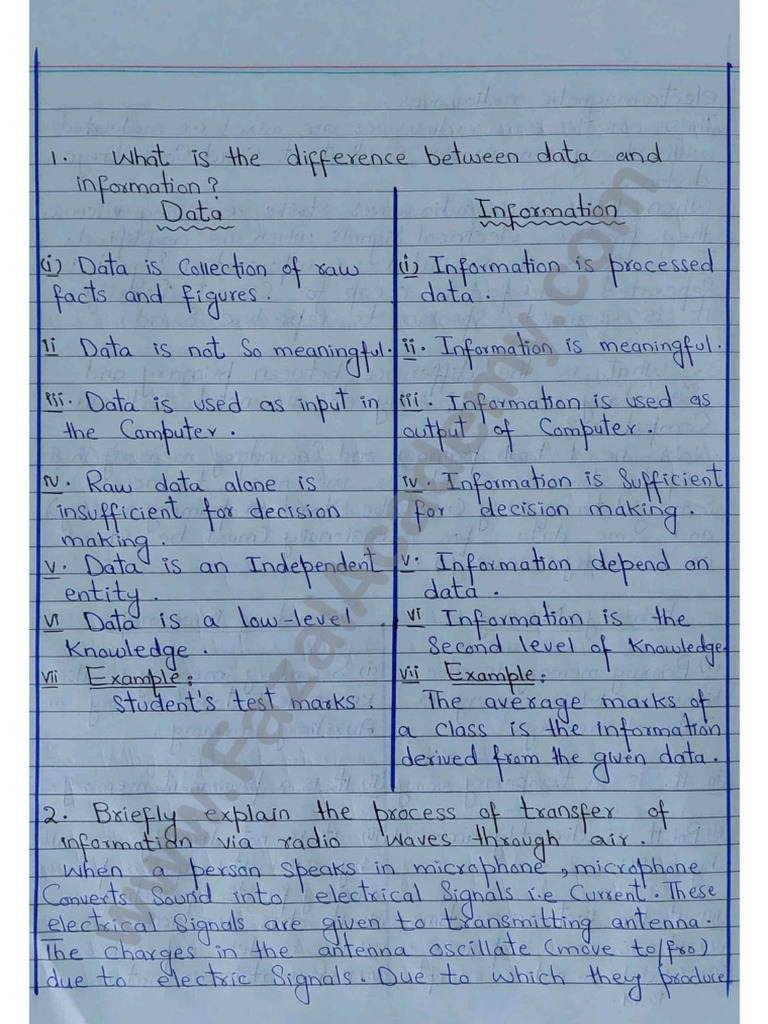 1. What is the difference between data and
information?
Data
(i) Data is Collection of raw
facts and figures.
ii Data is not So meaningful.
iii. Data is used as input in
the Computer.
iv. Raw data alone is
insufficient for decision
making.
v. Data is an Independent
entity.
vi Data is a low-level
Knowledge.
vii Example:
Student's test marks.
Information
(i) Information is processed
data.
ii. Information is meaningful.
iii. Information is used as
output of Computer.
iv. Information is Sufficient
for decision making.
v. Information depend on
data.
vi Information is the
Second level of Knowledge
vii Example:
The average marks of
a class is the information
derived from the given data.
2. Briefly explain the process of transfer of
information via radio waves through air.
When a person speaks in microphone, microphone
Converts Sound into electrical Signals i.e Current. These
electrical Signals are given to transmitting antenna.
The charges in the antenna oscillate (move to/fro)
due to electric Signals. Due to which they produce
www.FazalAcademy.com